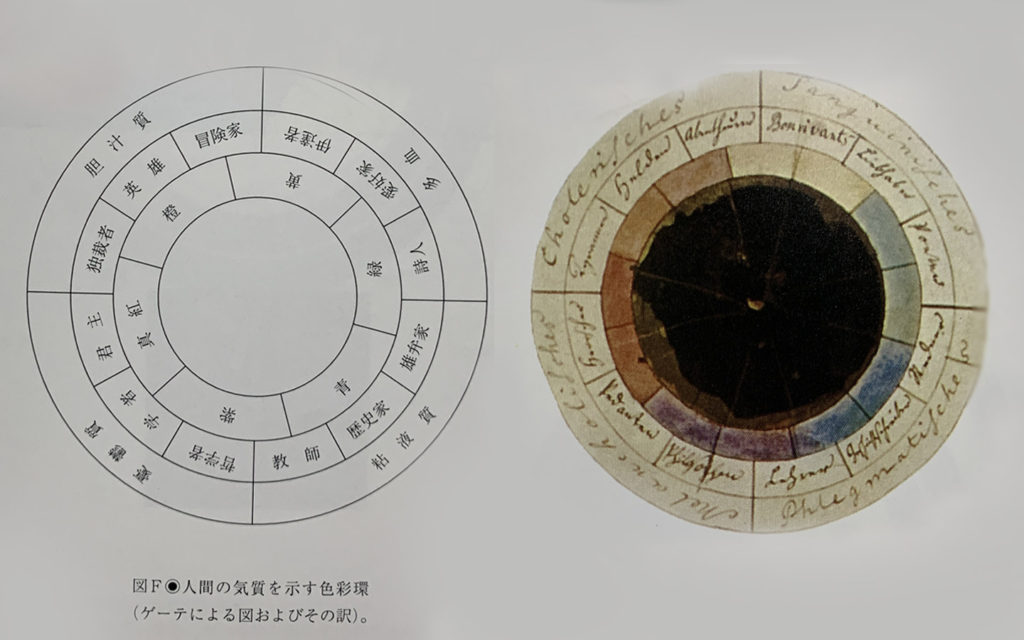 胆汁質
多血
粘液質
憂鬱質
冒険家
伊達者
愛好家
詩人
雄弁家
歴史家
教師
哲学者
学者
君主
独裁者
英雄
黄
緑
青
紫
真紅
橙
図F◉人間の気質を示す色彩環
（ゲーテによる図およびその訳）。
Cholerisches
Sanguinisches
Phlegmatisches
Melancholisches
Bonvivants
Lehrer